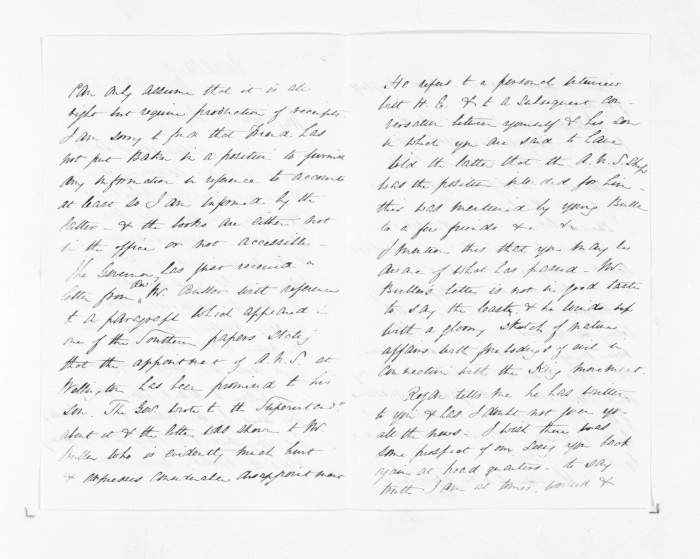 Can only assume that it is all
right but require production of receipts
I am sorry to find that Mend has
not put Baker in a position to furnish
any information in reference to accounts
at least so I am informed by the
latter - & the books are either not
in the office or not accessible -
The Governor has just received a
letter from Revd. Mr. Buller with reference
to a paragraph which appeared in
one of the Southern papers stating
that the appointment of A.N.S. at
Wellington has been promised to his
Son. The Gov. wrote to the Superintendt
about it & the letter was shown to Mr.
Buller who is evidently much hurt
& expresses considerable disappointment
He refers to a personal interview
with H.E. & to a subsequent con-
versation between yourself & his son
in which you are said to have
told the latter that the A.N.S. Ship
was the position intended for him -
this was mentioned by young Buller
to a few friends &c &
I mention this that you may be
aware of what has passed - Mr.
Buller's letter is not in good taste
to say the least, & he winds up
with a gloomy sketch of native
affairs with forebodings of evil in
connection with the King movement.
Rogan tells me he has written
to you & has I doubt not given you
all the news - I wish there was
some prospect of our seeing you back
again at head quarters - to say
truth I am at times bored &